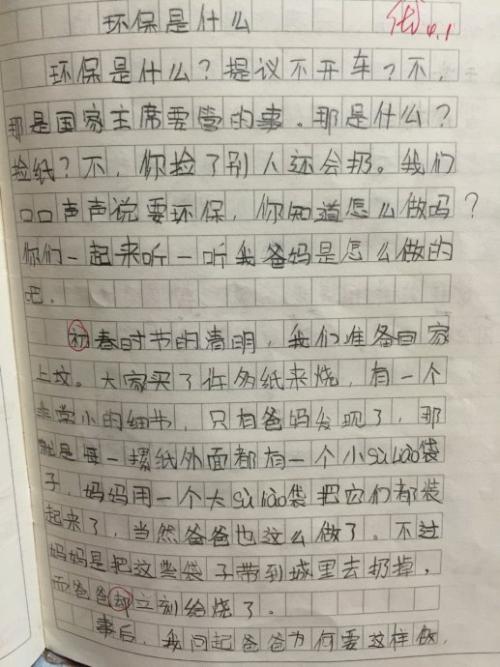 环保是什么
优 4.1
环保是什么?提议不开车?不,
那是国家主席要管的事。那是什么?
捡纸?不,你捡了别人还会扔。我们
口口声声说要环保,你知道怎么做吗?
你们一起来听一听我爸妈是怎么做的
吧。
初春时节的清明,我们准备回家
上坟。大家买了许多纸来烧,有一个
非常小的细节,只有爸妈发现了,那
就是每一摞纸外面都有一个小sù liào袋
子,妈妈用一个大sù liào袋把它们都装
起来了,当然爸爸也这么做了。不过
妈妈是把这些袋子带到城里去扔掉,
而爸爸却立刻给烧了。
事后,我问起爸爸为何要这样做,